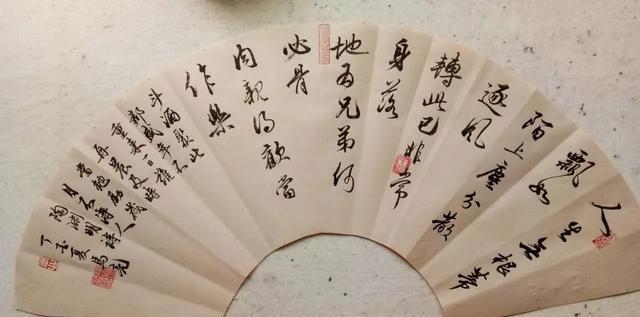 人生无根蒂
飄如
陌上塵分散
逐風
轉此已非常
身落
地为兄弟何
必骨
肉親得歡當
作樂
斗酒聚比
鄰盛年不
重来一日難
再晨及時
當勉勵歲
月不待人
陶淵明詩
丁酉夏馬亮